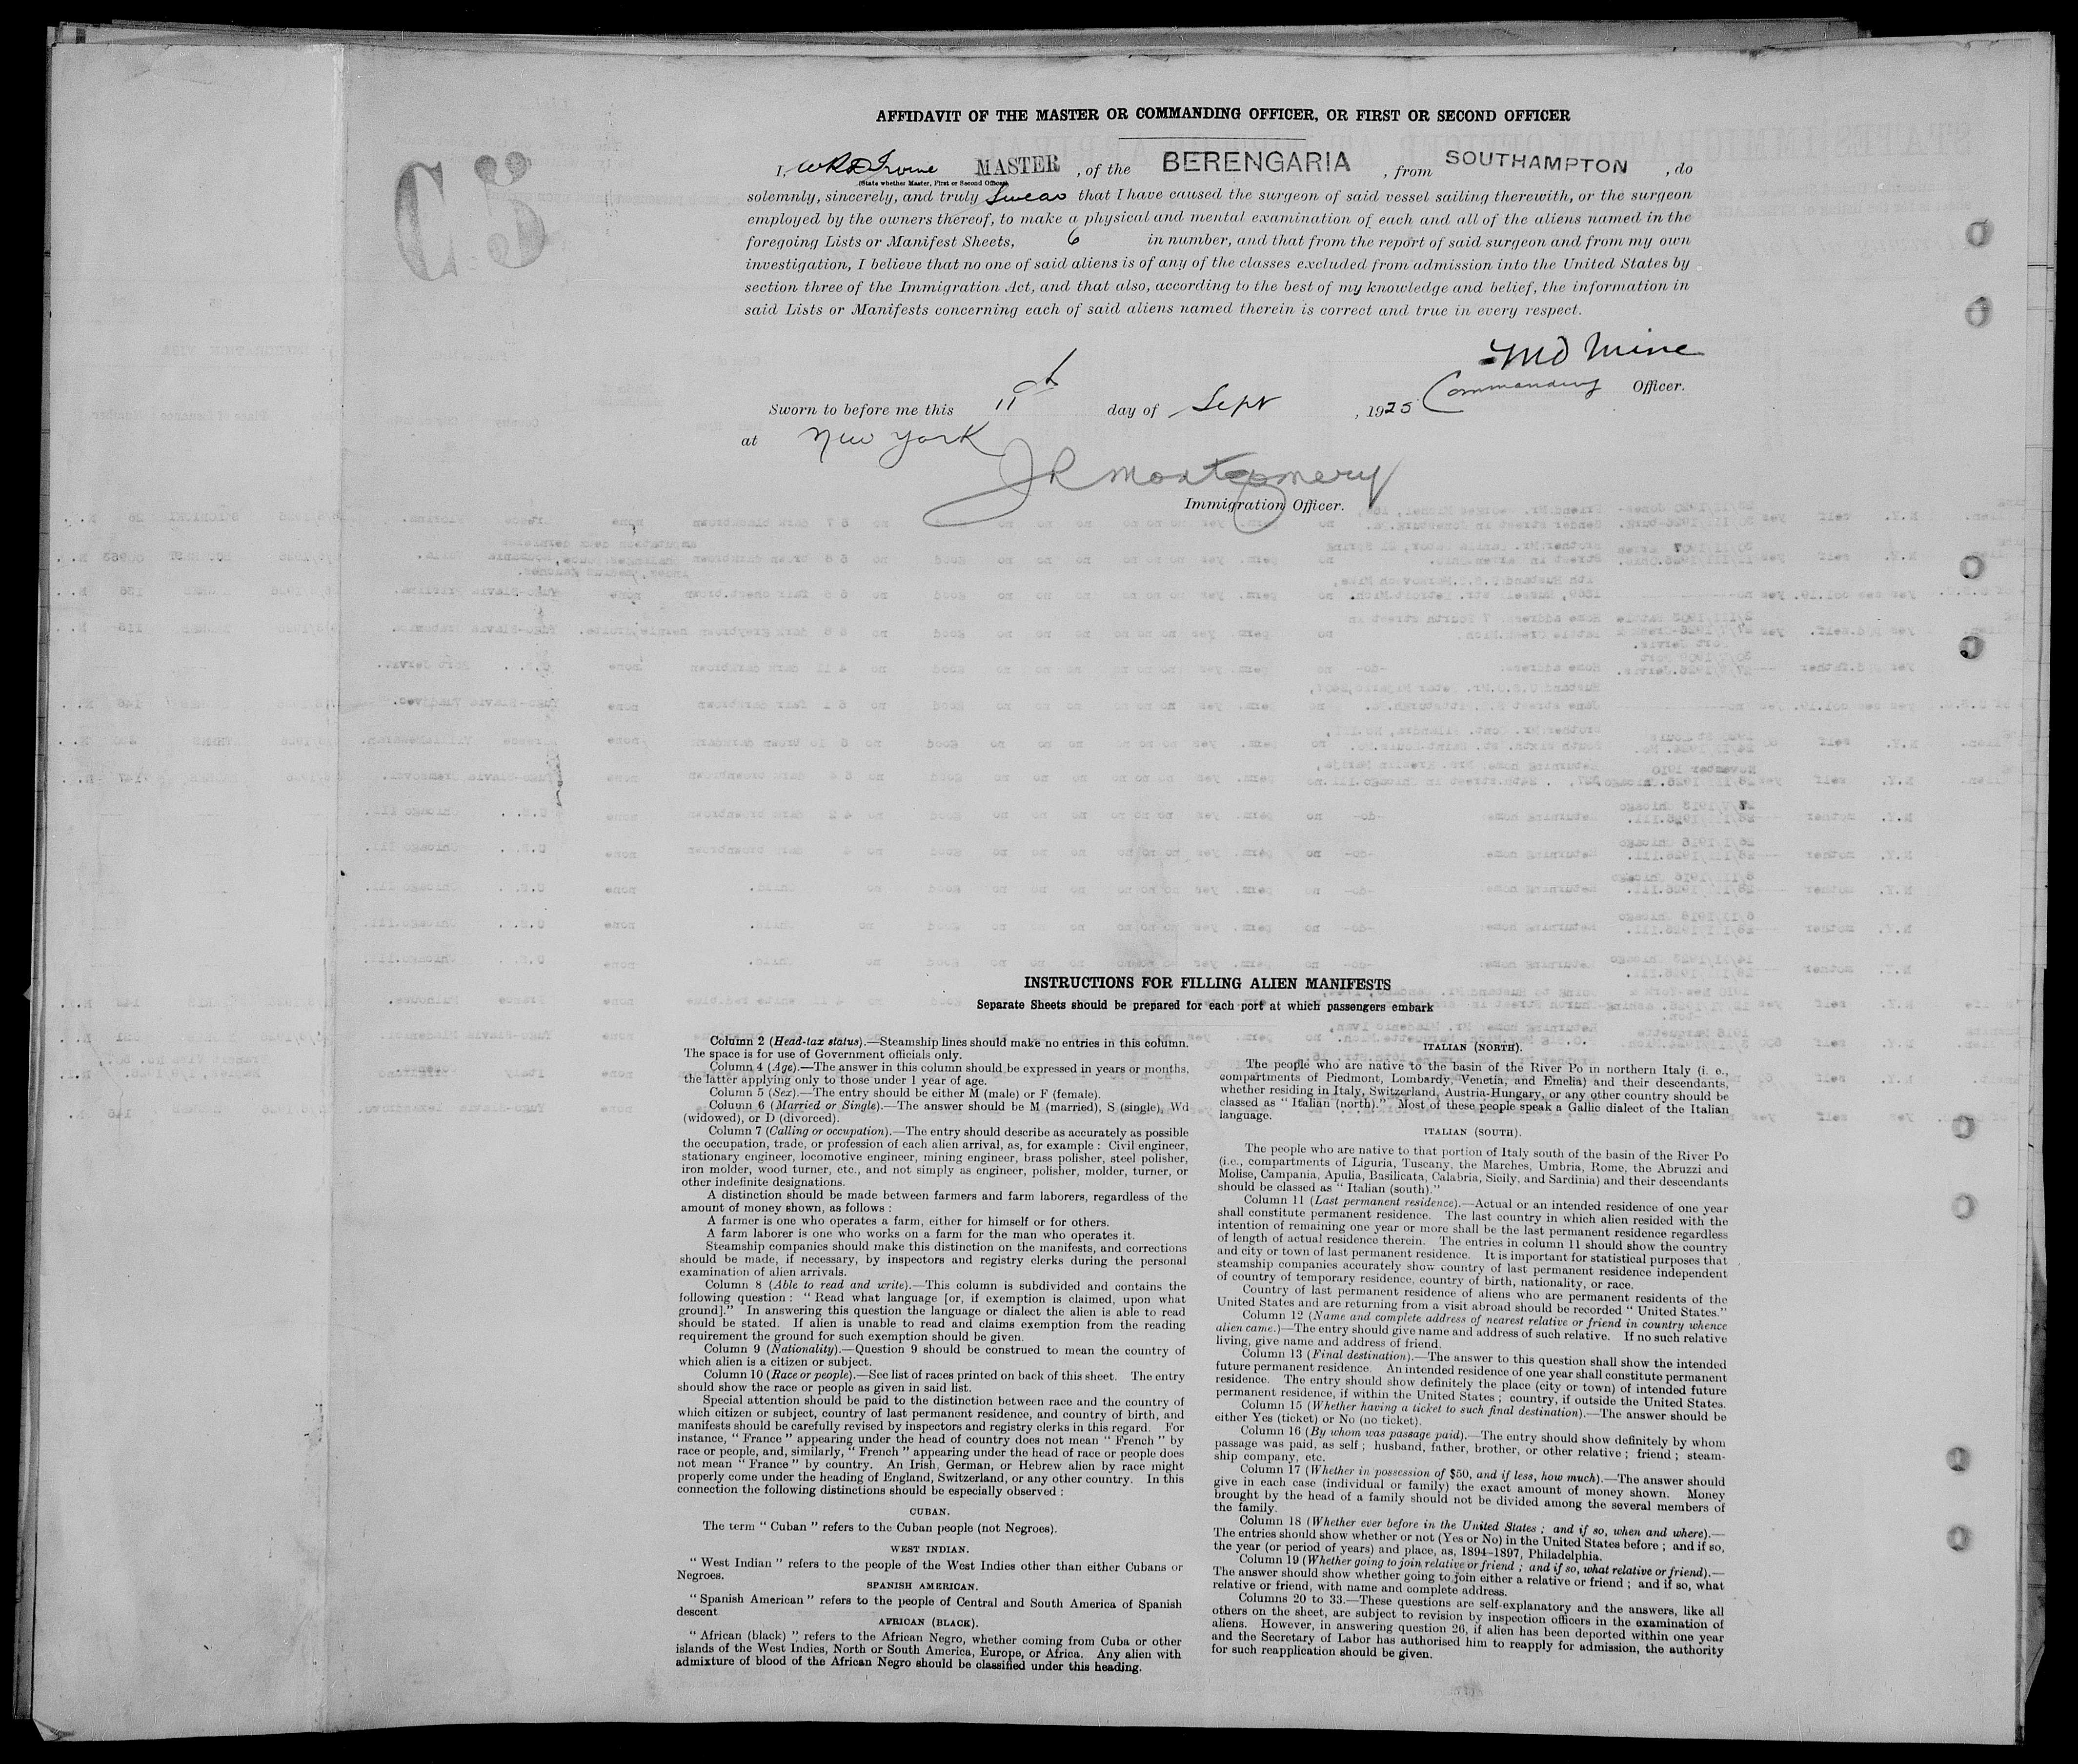 AFFIDAVIT OF THE MASTER OR COMMANDING OFFICER, OR FIRST OR SECOND OFFICER
C5
I, MASTER, of the BERENGARIA, from SOUTHAMPTON, do
(State whether Master, First or Second Officer)
solemnly, sincerely, and truly swear that I have caused the surgeon of said vessel sailing therewith, or the surgeon
employed by the owners thereof, to make a physical and mental examination of each and all of the aliens named in the
foregoing Lists or Manifest Sheets, 6 in number, and that from the report of said surgeon and from my own
investigation, I believe that no one of said aliens is of any of the classes excluded from admission into the United States by
section three of the Immigration Act, and that also, according to the best of my knowledge and belief, the information in
said Lists or Manifests concerning each of said aliens named therein is correct and true in every respect.
Commanding Officer.
Sworn to before me this 11th day of Sept, 1925
at New York
JR Montgomery
Immigration Officer.
INSTRUCTIONS FOR FILLING ALIEN MANIFESTS
Separate Sheets should be prepared for each port at which passengers embark
Column 2 (Head-tax status).—Steamship lines should make no entries in this column.
The space is for use of Government officials only.
Column 4 (Age).—The answer in this column should be expressed in years or months,
the latter applying only to those under 1 year of age.
Column 5 (Sex).—The entry should be either M (male) or F (female).
Column 6 (Married or Single).—The answer should be M (married), S (single), Wd
(widowed), or D (divorced).
Column 7 (Calling or occupation).—The entry should describe as accurately as possible
the occupation, trade, or profession of each alien arrival, as, for example : Civil engineer,
stationary engineer, locomotive engineer, mining engineer, brass polisher, steel polisher,
iron molder, wood turner, etc., and not simply as engineer, polisher, molder, turner, or
other indefinite designations.
A distinction should be made between farmers and farm laborers, regardless of the
amount of money shown, as follows :
A farmer is one who operates a farm, either for himself or for others.
A farm laborer is one who works on a farm for the man who operates it.
Steamship companies should make this distinction on the manifests, and corrections
should be made, if necessary, by inspectors and registry clerks during the personal
examination of alien arrivals.
Column 8 (Able to read and write).—This column is subdivided and contains the
following question : " Read what language [or, if exemption is claimed, upon what
ground]." In answering this question the language or dialect the alien is able to read
should be stated. If alien is unable to read and claims exemption from the reading
requirement the ground for such exemption should be given.
Column 9 (Nationality).—Question 9 should be construed to mean the country of
which alien is a citizen or subject.
Column 10 (Race or people).—See list of races printed on back of this sheet. The entry
should show the race or people as given in said list.
Special attention should be paid to the distinction between race and the country of
which citizen or subject, country of last permanent residence, and country of birth, and
manifests should be carefully revised by inspectors and registry clerks in this regard. For
instance, " France " appearing under the head of country does not mean " French " by
race or people, and, similarly, " French " appearing under the head of race or people does
not mean " France " by country. An Irish, German, or Hebrew alien by race might
properly come under the heading of England, Switzerland, or any other country. In this
connection the following distinctions should be especially observed :
CUBAN.
The term " Cuban " refers to the Cuban people (not Negroes).
WEST INDIAN.
" West Indian " refers to the people of the West Indies other than either Cubans or
Negroes.
SPANISH AMERICAN.
" Spanish American " refers to the people of Central and South America of Spanish
descent
AFRICAN (BLACK).
" African (black) " refers to the African Negro, whether coming from Cuba or other
islands of the West Indies, North or South America, Europe, or Africa. Any alien with
admixture of blood of the African Negro should be classified under this heading.
ITALIAN (NORTH).
The people who are native to the basin of the River Po in northern Italy (i. e.,
compartments of Piedmont, Lombardy, Venetia, and Emelia) and their descendants,
whether residing in Italy, Switzerland, Austria-Hungary, or any other country should be
classed as " Italian (north)." Most of these people speak a Gallic dialect of the Italian
language.
ITALIAN (SOUTH).
The people who are native to that portion of Italy south of the basin of the River Po
(i.e., compartments of Liguria, Tuscany, the Marches, Umbria, Rome, the Abruzzi and
Molise, Campania, Apulia, Basilicata, Calabria, Sicily, and Sardinia) and their descendants
should be classed as " Italian (south)."
Column 11 (Last permanent residence).—Actual or an intended residence of one year
shall constitute permanent residence. The last country in which alien resided with the
intention of remaining one year or more shall be the last permanent residence regardless
of length of actual residence therein. The entries in column 11 should show the country
and city or town of last permanent residence. It is important for statistical purposes that
steamship companies accurately show country of last permanent residence independent
of country of temporary residence, country of birth, nationality, or race.
Country of last permanent residence of aliens who are permanent residents of the
United States and are returning from a visit abroad should be recorded " United States."
Column 12 (Name and complete address of nearest relative or friend in country whence
alien came.)—The entry should give name and address of such relative. If no such relative
living, give name and address of friend.
Column 13 (Final destination).—The answer to this question shall show the intended
future permanent residence. An intended residence of one year shall constitute permanent
residence. The entry should show definitely the place (city or town) of intended future
permanent residence, if within the United States ; country, if outside the United States.
Column 15 (Whether having a ticket to such final destination).—The answer should be
either Yes (ticket) or No (no ticket).
Column 16 (By whom was passage paid).—The entry should show definitely by whom
passage was paid, as self ; husband, father, brother, or other relative ; friend ; steam-
ship company, etc.
Column 17 (Whether in possession of $50, and if less, how much).—The answer should
give in each case (individual or family) the exact amount of money shown. Money
brought by the head of a family should not be divided among the several members of
the family.
Column 18 (Whether ever before in the United States ; and if so, when and where).—
The entries should show whether or not (Yes or No) in the United States before ; and if so,
the year (or period of years) and place, as, 1894–1897, Philadelphia.
Column 19 (Whether going to join relative or friend ; and if so, what relative or friend).—
The answer should show whether going to join either a relative or friend ; and if so, what
relative or friend, with name and complete address.
Columns 20 to 33.—These questions are self-explanatory and the answers, like all
others on the sheet, are subject to revision by inspection officers in the examination of
aliens. However, in answering question 26, if alien has been deported within one year
and the Secretary of Labor has authorised him to reapply for admission, the authority
for such reapplication should be given.